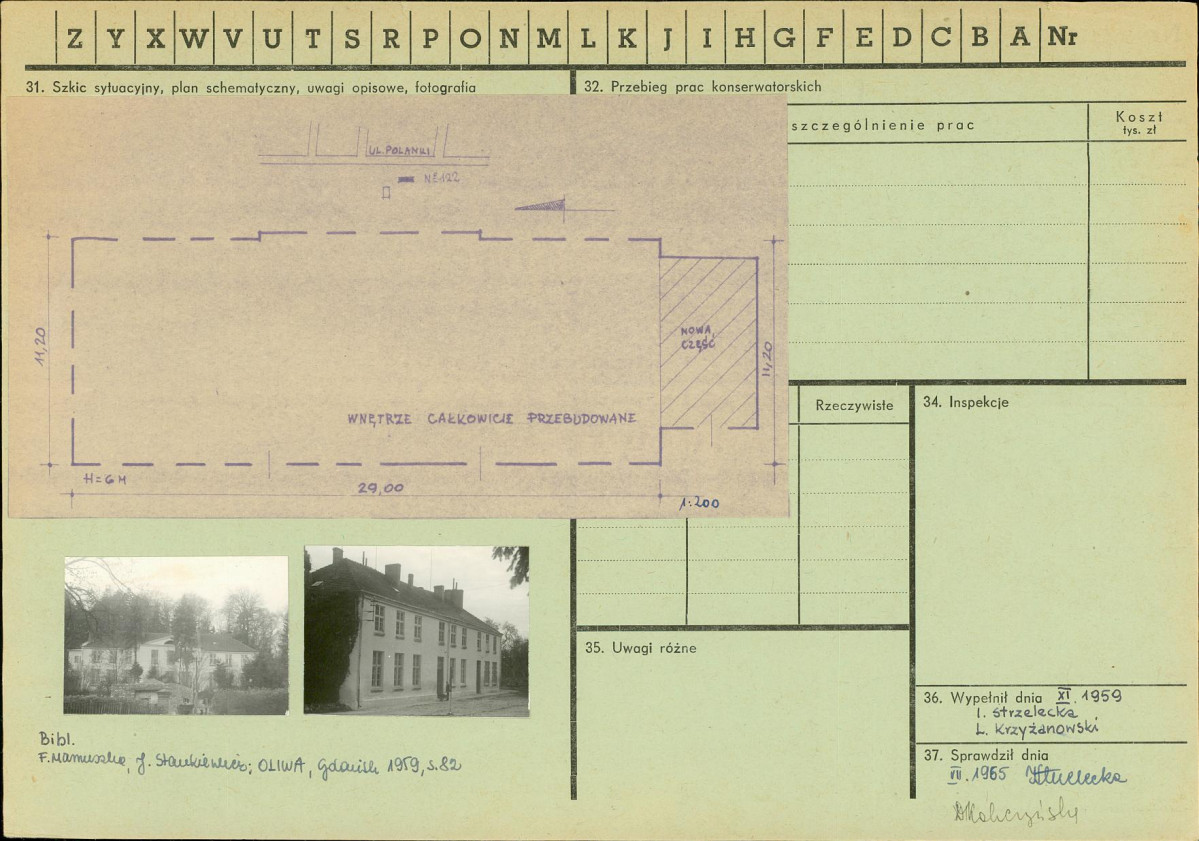 Z Y X W V U T S R P O N M L K J I H G F E D C B A Nr
31. Szkic sytuacyjny, plan schematyczny, uwagi opisowe, fotografia
32. Przebieg prac konserwatorskich
szczególnienie prac
Koszt
tys. zł
UL. POLANKI
NE 122
11,20
NOWA
CZĘŚĆ
11,20
WNĘTRZE CAŁKOWICIE PRZEBUDOWANE
H=6M
29,00
1:200
Rzeczywiste
34. Inspekcje
35. Uwagi różne
36. Wypełnił dnia XI.1959
I. Strzelecka
L. Krzyżanowski
37. Sprawdził dnia
VII.1965 IStrzelecka
Bibl.
F. Mamuszka, J. Stankiewicz; OLIWA, Gdańsk 1959, s.82